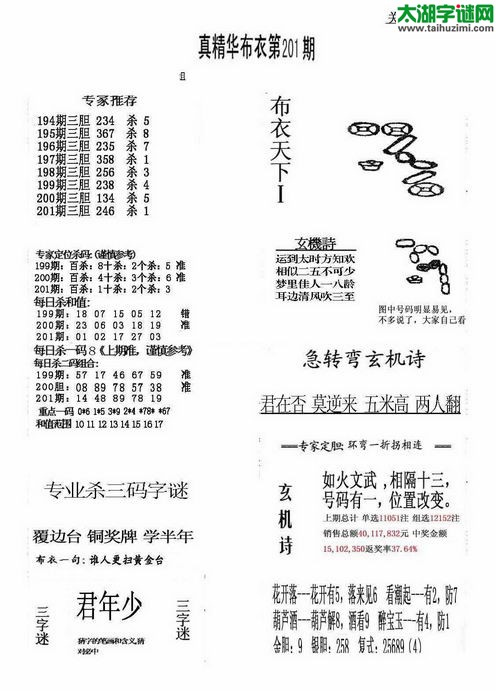 太湖字谜网
www.taihuzimi.com
真精华布衣第201期
专家推荐
194期三胆 234 杀 5
195期三胆 367 杀 8
196期三胆 235 杀 7
197期三胆 358 杀 1
198期三胆 256 杀 3
199期三胆 238 杀 4
200期三胆 134 杀 5
201期三胆 246 杀 1
布衣天下I
专家定位杀码:(谨慎参考)
199期: 百杀: 8十杀: 2个杀: 5 准
200期: 百杀: 4十杀: 3个杀: 6 准
201期: 百杀: 1十杀: 2个杀: 3
每日杀和值:
199期: 18 07 15 05 12 错
200期: 23 06 03 18 19 准
201期: 01 02 17 27 03
每日杀一码8《上期准, 谨慎参考》
每日杀二码组合:
199期: 57 17 46 67 59 准
200胆: 08 89 78 57 38 准
201期: 14 48 89 78 19
重点一码 0*6 1*5 3*9 2*4 *78* *67
和值范围 10 11 12 13 14 15 16 17
玄機詩
运到太时方知欢
相似二五不可少
梦里佳人一八龄
耳边清风吹三至
图中号码明显易见,
不多说了, 大家自己看
急转弯玄机诗
君在否 莫逆来 五米高 两人翻
===专家定胆: 环弯一折拐相连
专业杀三码字谜
覆边台 铜奖牌 学半年
布衣一句: 谁人更扫黄金台
玄机诗
如火文武, 相隔十三,
号码有一, 位置改变。
上期总计 单选11051注 组选12152注
销售总额40,117,832元 中奖金额
15,102,350返奖率37.64%
三字迷
君年少
三字迷
猜字的笔画和含义,猜
对必中
花开落---花开有5, 落来见6 看潮起---有2, 防7
葫芦酒---葫芦解8, 酒看9 醉宝玉---有4, 防1
金胆: 9 银胆: 258 复式: 25689 (4)